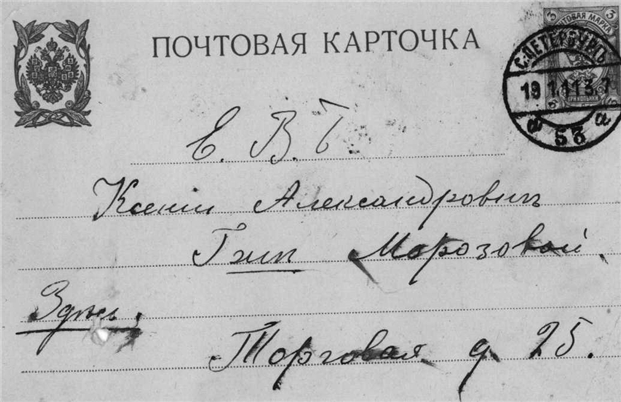 ПОЧТОВАЯ КАРТОЧКА
3 ПОЧТОВАЯ МАРКА 3
С.ПЕТЕРБУРГЪ
19 1.11 3.7
53
Е. В. Б
Ксеніи Александровнѣ
Гип Морозовой
Здѣсь.
Торговая д 25.